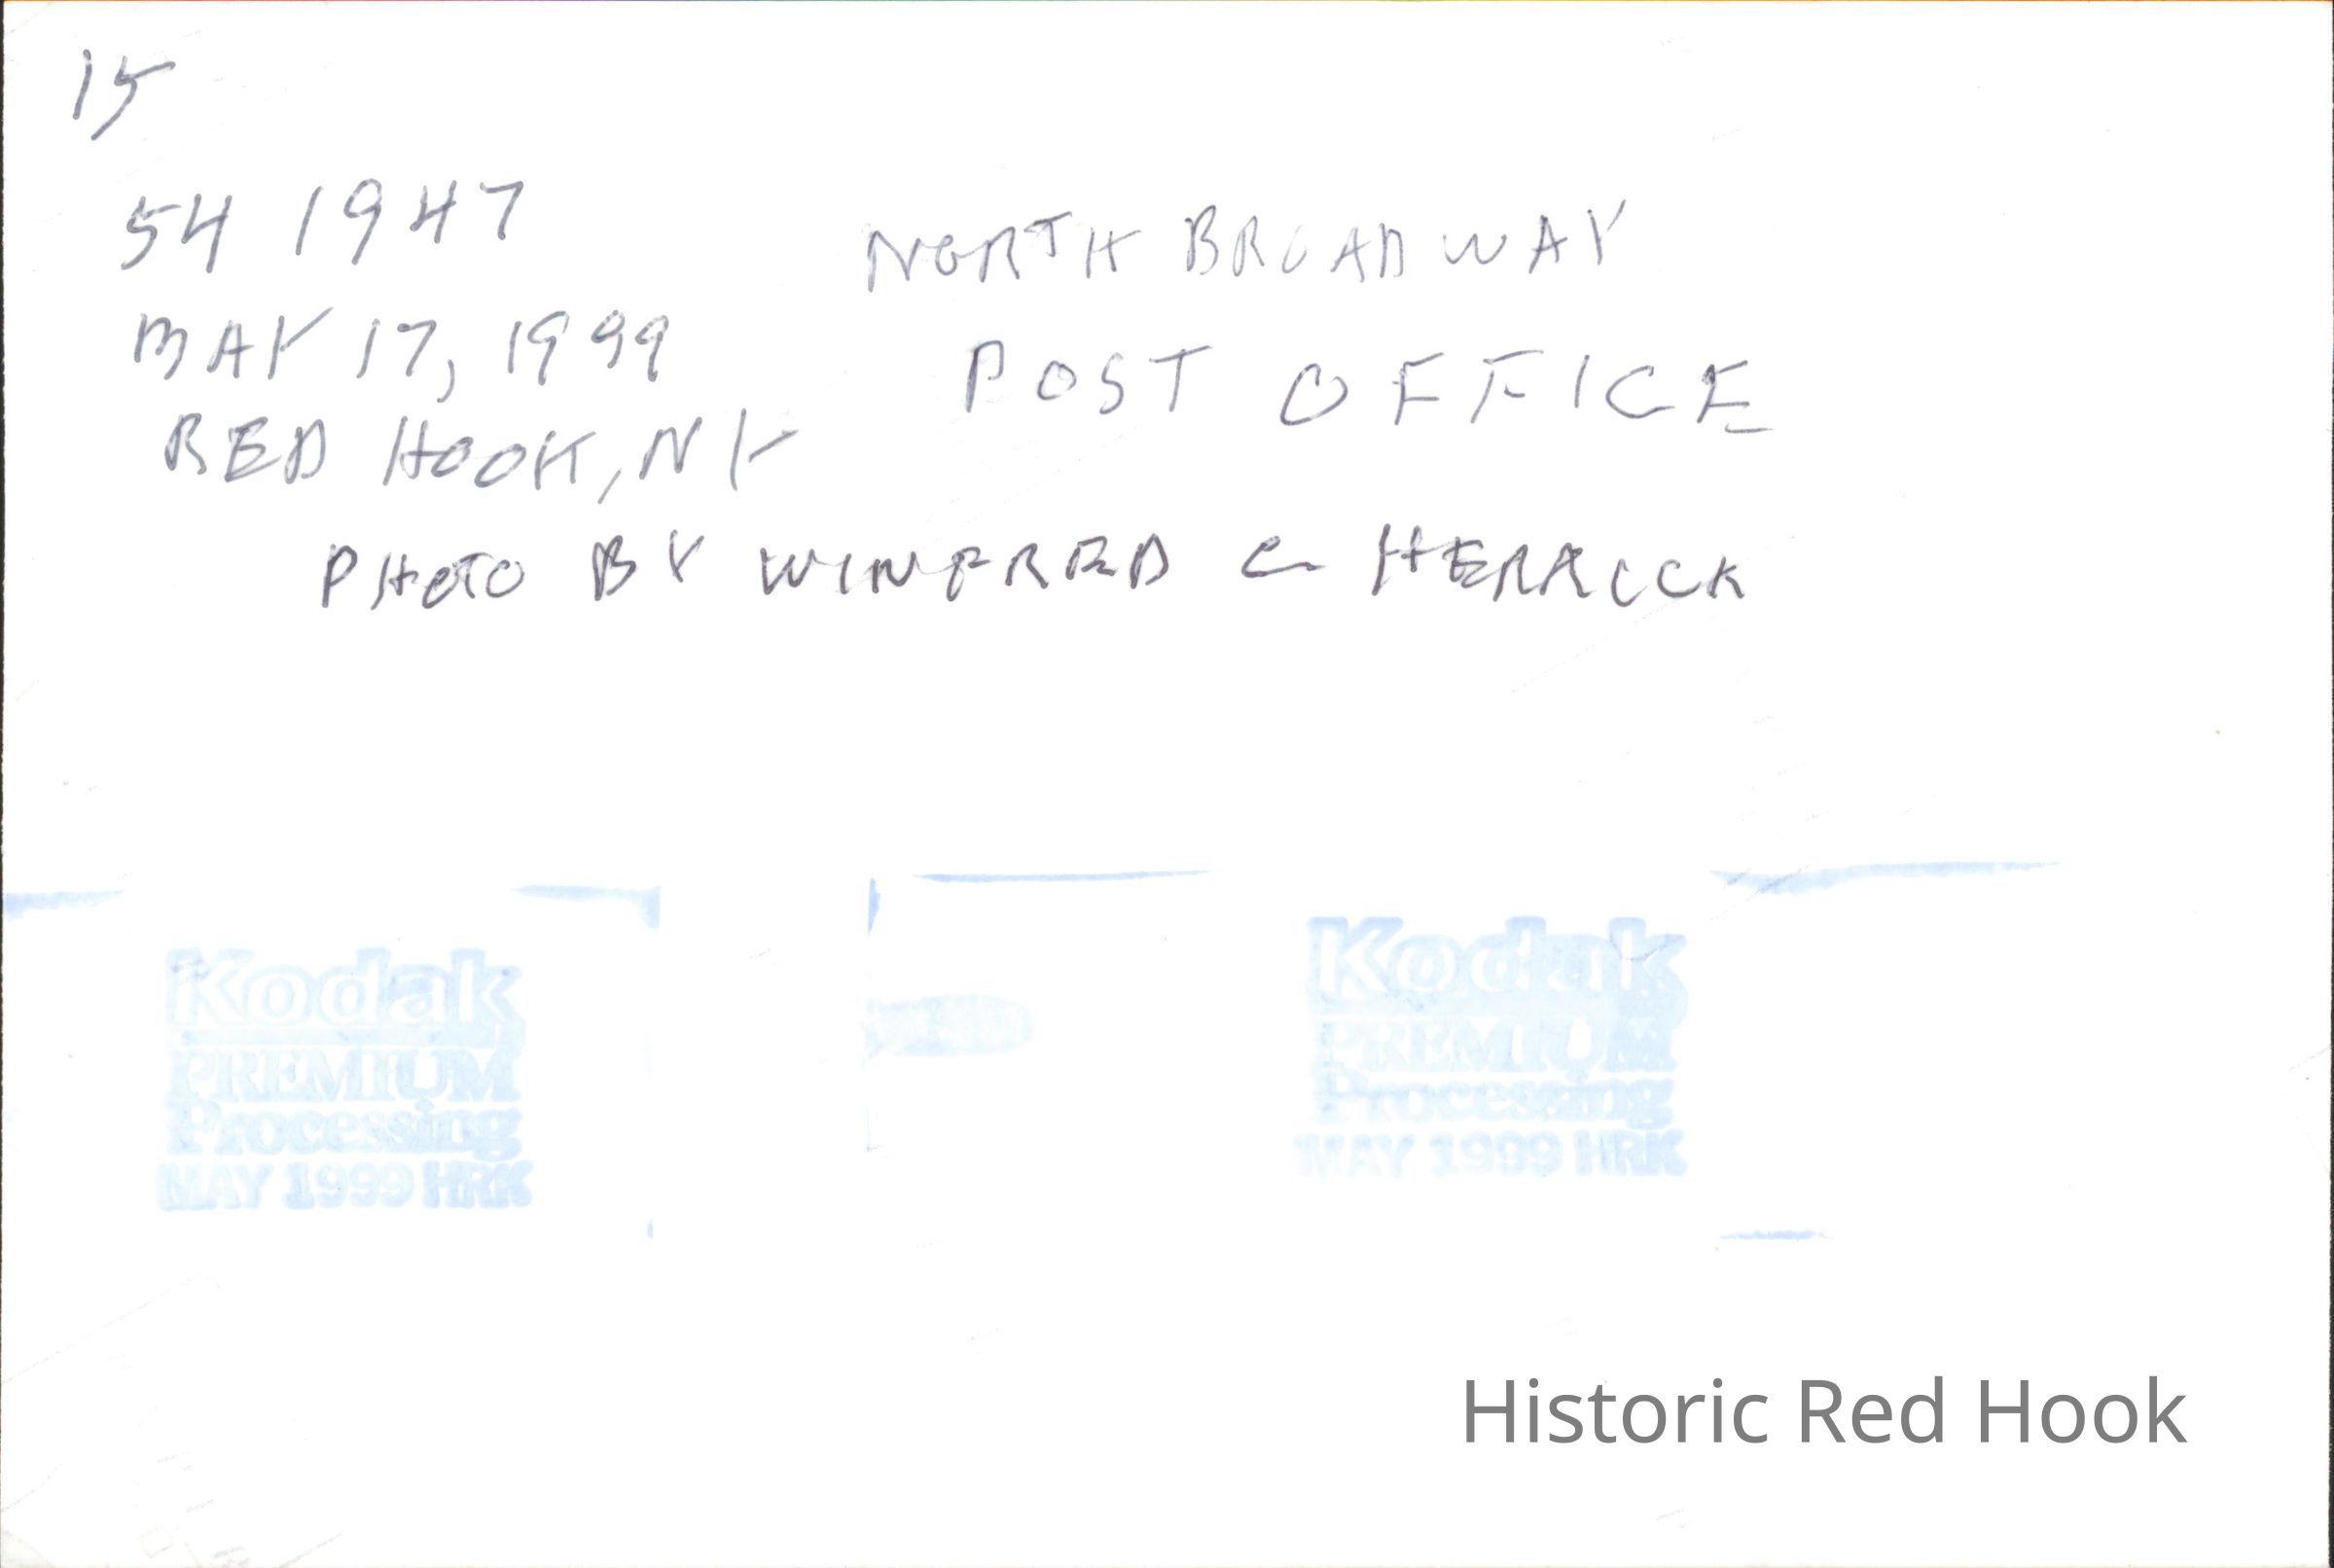 15
54 1947
NORTH BROADWAY
MAY 17, 1999
POST OFFICE
RED HOOK, NY
PHOTO BY WINFRED C HERRICK
Kodak
PREMIUM
Processing
MAY 1999 HRK
Kodak
PREMIUM
Processing
MAY 1999 HRK
Historic Red Hook